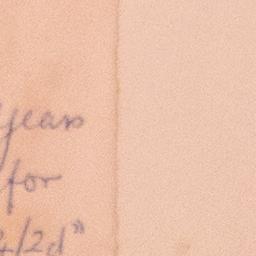 years
for
4/2d"